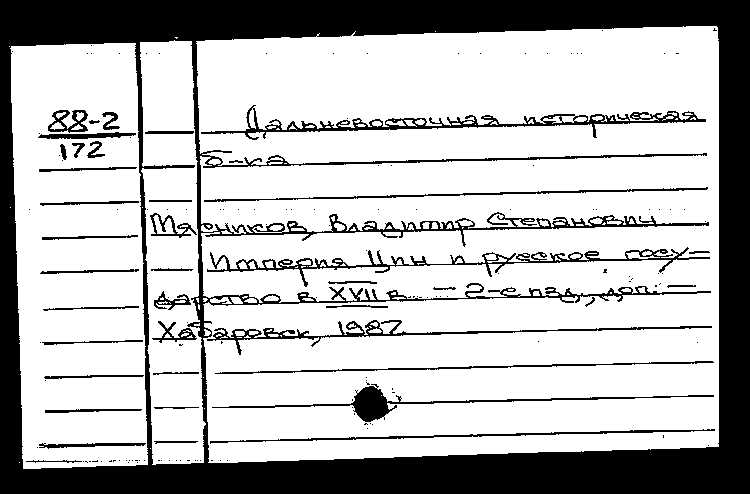 88-2
172
Дальневосточная историческая
б-ка
Мясников, Владимир Степанович
Империя Цин и русское госу-
дарство в XVII в. — 2-е изд., доп. —
Хабаровск, 1987